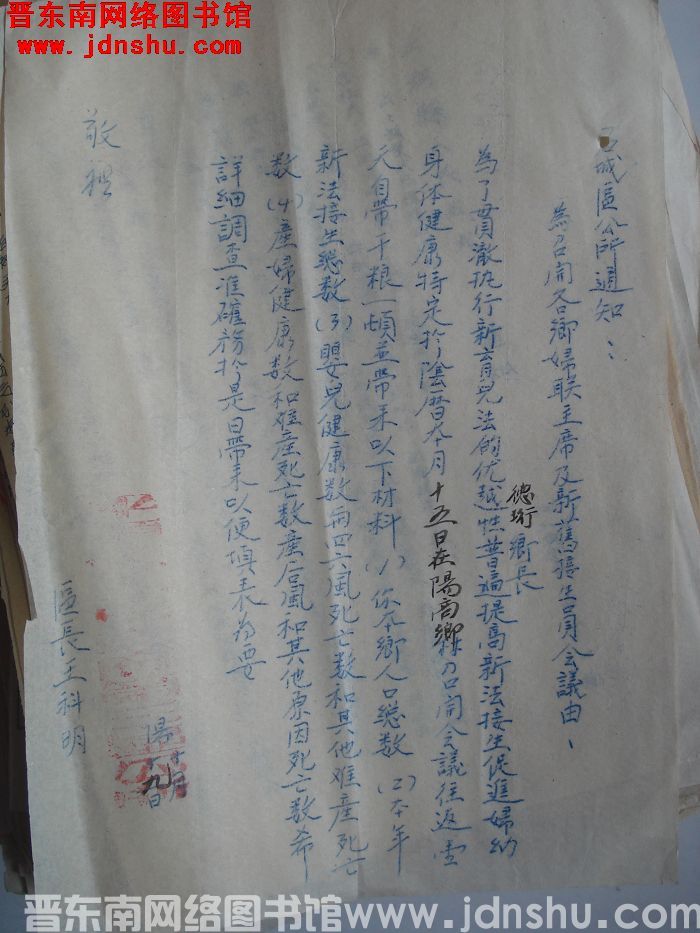 晋东南网络图书馆
www.jdnshu.com
城區公所通知：
為召開各鄉婦联主席及新舊接生員会議由、
德珩鄉長
為了貫澈执行新育兒法的优越性普遍提高新法接生促進婦幼
身体健康特定於陰曆本月十五日在陽高鄉召開会議往返需
元自带干粮一頓並带来以下材料(1)你本鄉人口總数(2)本年
新法接生總数(3)嬰兒健康数與四六風死亡数和其他难產死亡
数(4)產婦健康数和难產死亡数產后風和其他原因死亡数希
詳細調查准確務於是日带来以便填表為要
敬禮
區長王科明
陽十月十九日
晋东南网络图书馆www.jdnshu.com